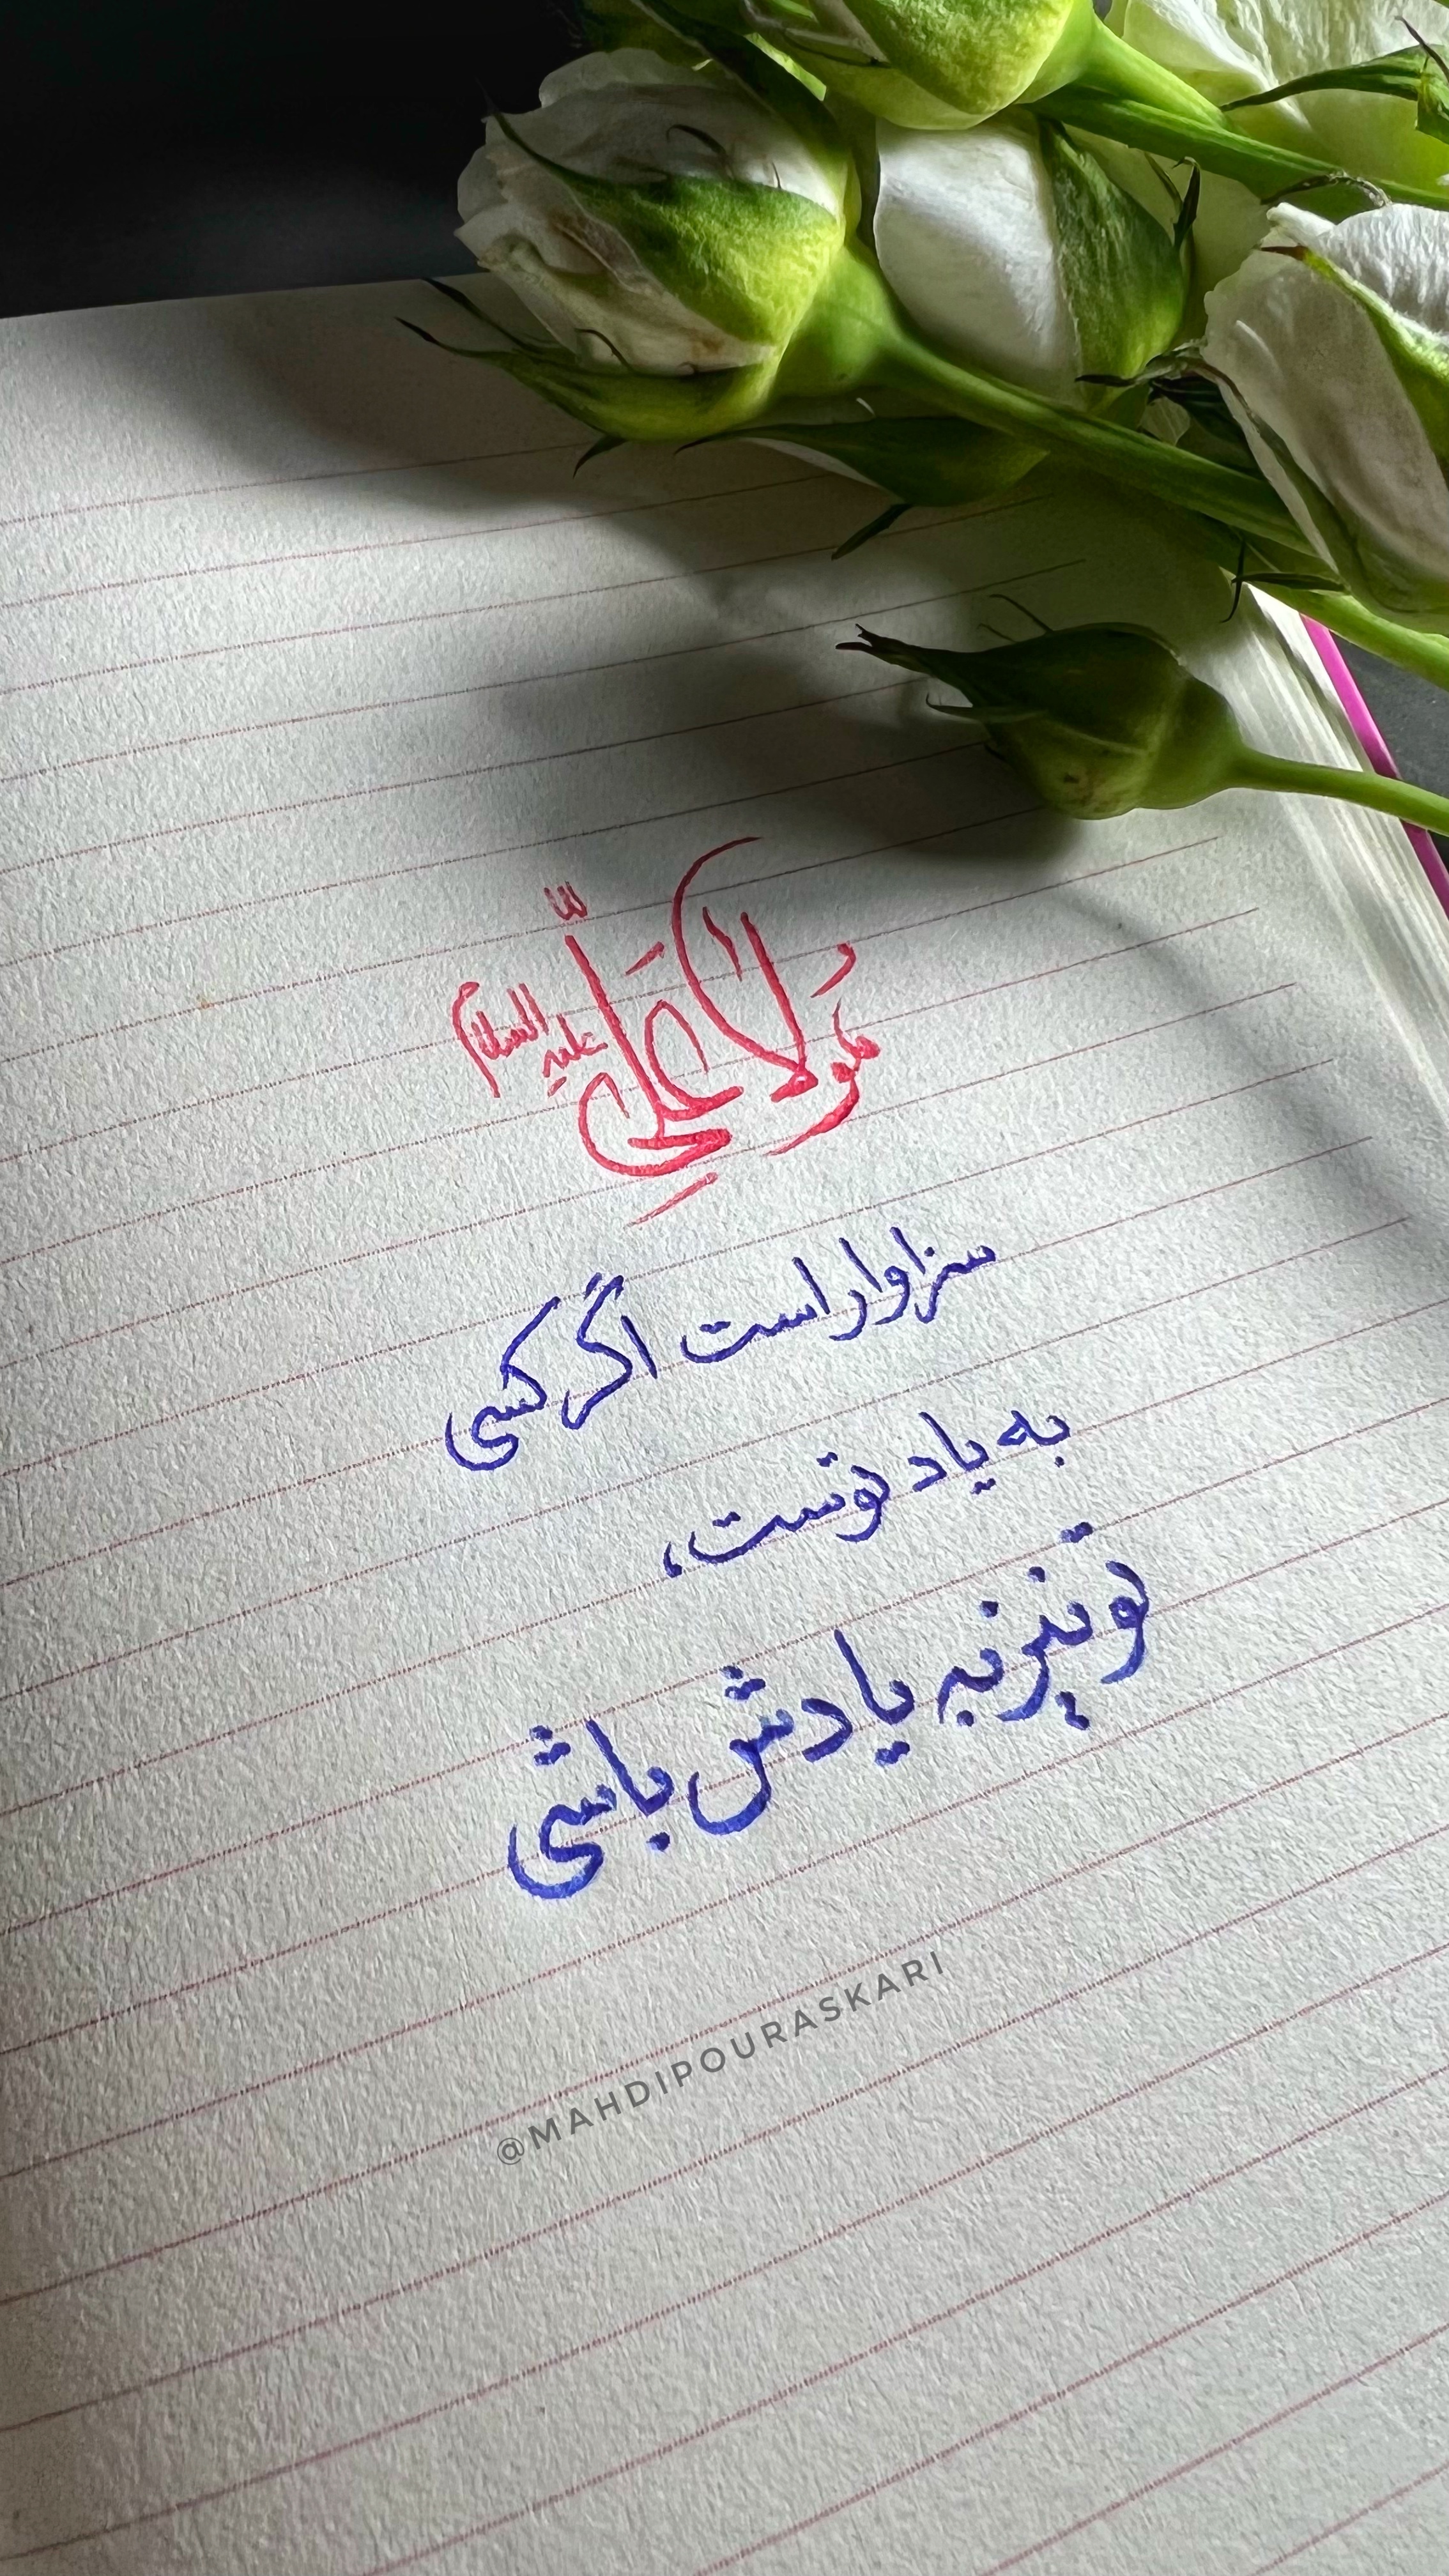 مولا علی علیه السلام
سزاوار است اگر کسی
به یاد توست،
تو نیز به یادش باشی
@MAHDIPOURASKARI